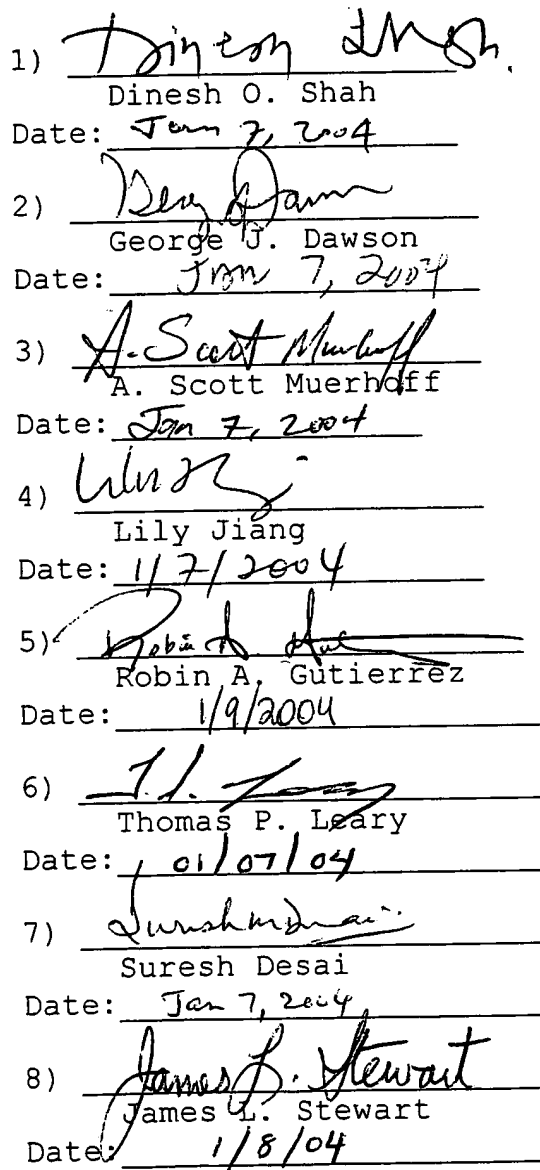 1) Dinesh Shah.
Dinesh O. Shah
Date: Jan 7, 2004
2)
George J. Dawson
Date: Jan 7, 2004
3) A. Scott Muerhoff
A. Scott Muerhoff
Date: Jan 7, 2004
4)
Lily Jiang
Date: 1/7/2004
5) Robin A.
Robin A. Gutierrez
Date: 1/9/2004
6)
Thomas P. Leary
Date: 01/07/04
7)
Suresh Desai
Date: Jan 7, 2004
8) James L. Stewart
James L. Stewart
Date: 1/8/04